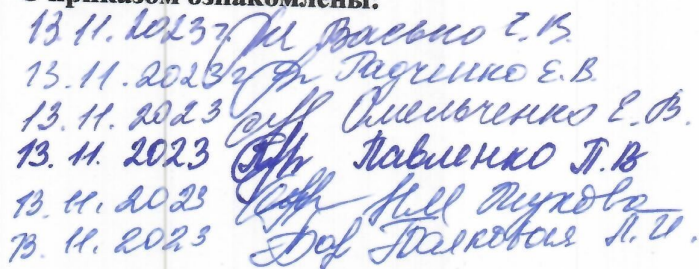 приказом ознакомлены.
13.11.2023 г. Васько Е.В.
13.11.2023 г Радченко Е.В.
13.11.2023 Омельченко Е.В.
13.11.2023 Павленко П.В
13.11.2023 НМ Глухова
13.11.2023 Л.И.